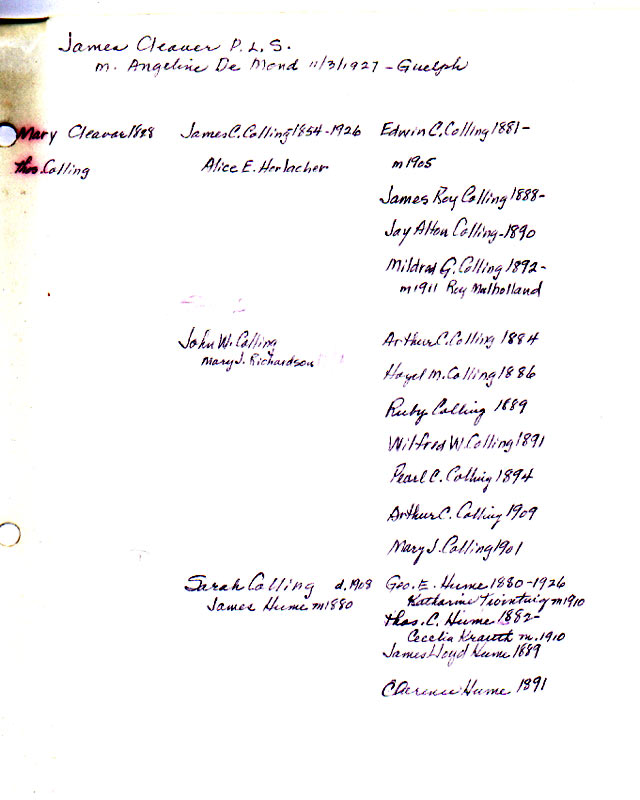 James Cleaver P.L.S.
m. Angeline De Mond 11/3/1927 - Guelph
Mary Cleaver 1828
Thos. Colling
James C. Colling 1854-1926
Alice E. Horlacher
Edwin C. Colling 1881-
m 1905
James Roy Colling 1888-
Jay Alton Colling - 1890
Mildred G. Colling 1892-
m 1911 Roy Mulholland
John W. Colling
Mary J. Richardson
Arthur C. Colling 1884
Hazel M. Colling 1886
Ruby Colling 1889
Wilfred W. Colling 1891
Pearl C. Colling 1894
Arthur C. Colling 1909
Mary J. Colling 1901
Sarah Colling d. 1908
James Hume m 1880
Geo. E. Hume 1880-1926
Katharine m 1910
Thos. C. Hume 1882-
Cecelia Krauth m. 1910
James Lloyd Hume 1889
Clarence Hume 1891